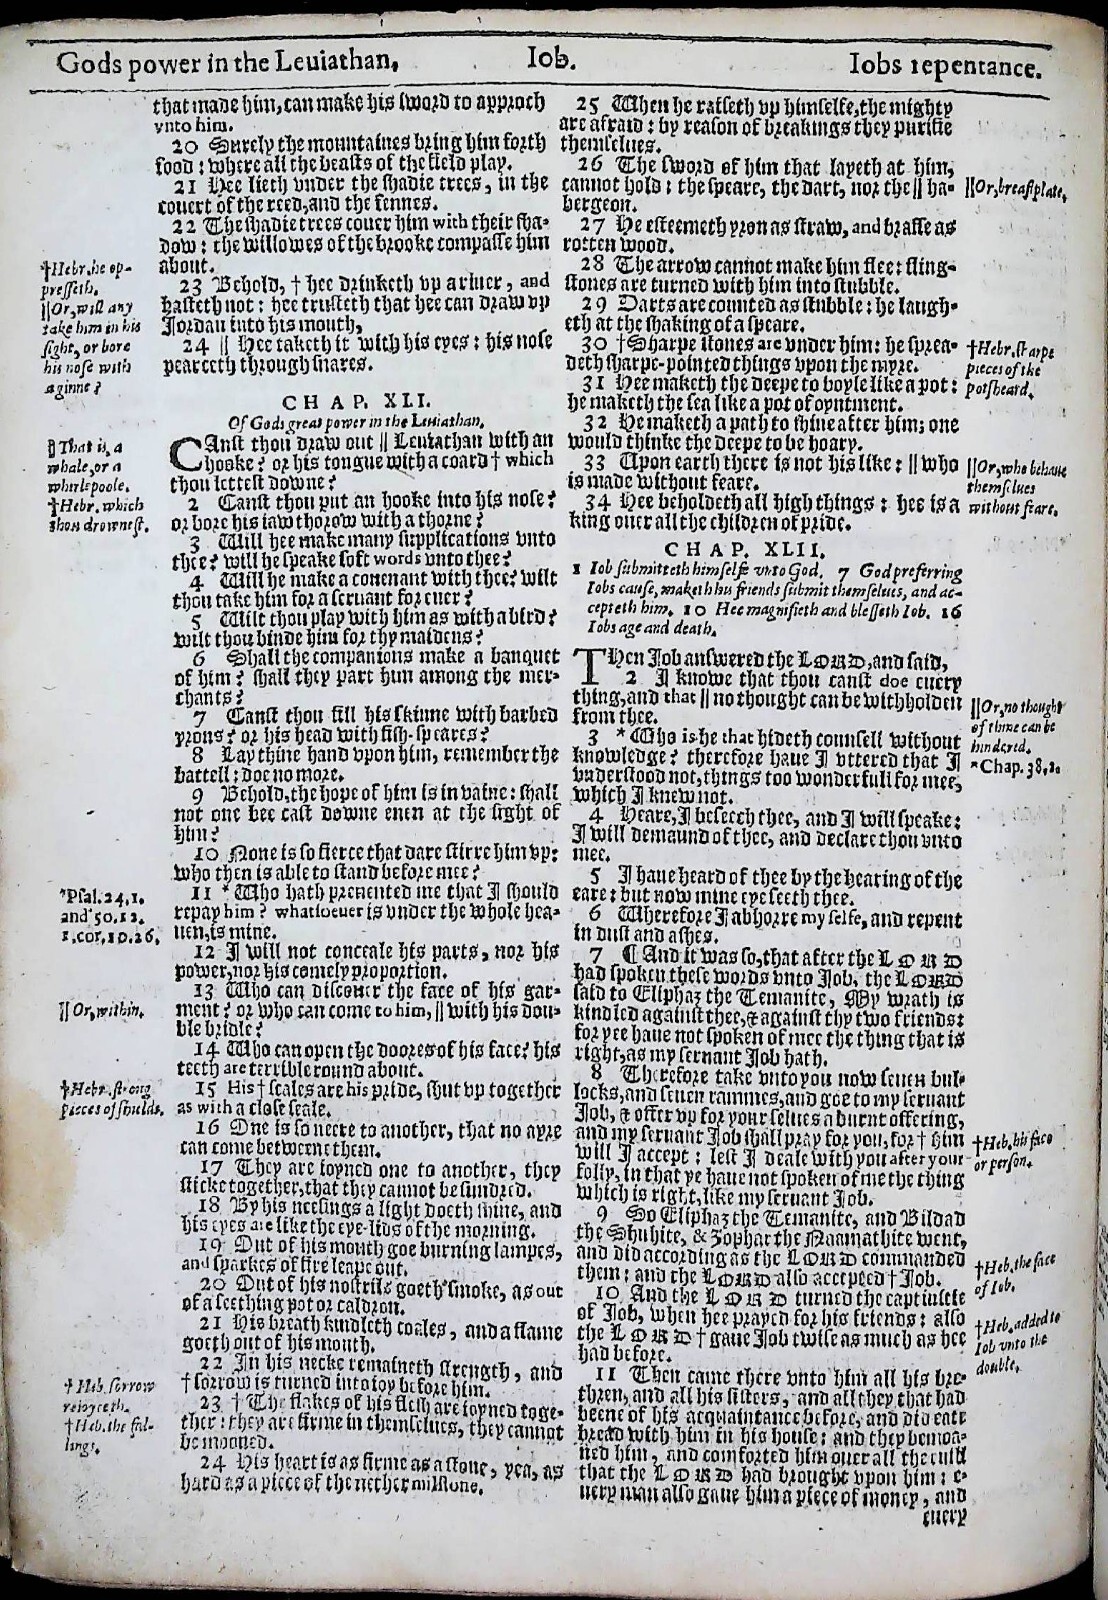 Gods power in the Leuiathan,
Iob.
Iobs repentance.
that made him, can make his sword to approch
vnto him.
20 Surely the mountaines bring him forth
food: where all the beasts of the field play.
21 Hee lieth vnder the shadie trees, in the
couert of the reed, and the fennes.
22 The shadie trees couer him with their sha-
dow: the willowes of the brooke compasse him
about.
23 Behold, † hee drinketh vp a riuer, and
hasteth not: hee trusteth that hee can draw vp
Jordan into his mouth,
24 || Hee taketh it with his eyes: his nose
pearceth through snares.
†Hebr. he op-
presseth.
||Or, will any
take him in his
sight, or bore
his nose with
a ginne?
CHAP. XLI.
Of Gods great power in the Leuiathan.
CAnst thou draw out || Leuiathan with an
hooke? or his tongue with a coard † which
thou lettest downe?
2 Canst thou put an hooke into his nose?
or bore his iaw thorow with a thorne?
3 Will hee make many supplications vnto
thee? will he speake soft words vnto thee?
4 Will he make a couenant with thee? wilt
thou take him for a seruant for euer?
5 Wilt thou play with him as with a bird?
wilt thou binde him for thy maidens?
6 Shall the companions make a banquet
of him? shall they part him among the mer-
chants?
7 Canst thou fill his skinne with barbed
yrons? or his head with fish-speares?
8 Lay thine hand vpon him, remember the
battell: doe no more.
9 Behold, the hope of him is in vaine: shall
not one bee cast downe euen at the sight of
him?
10 None is so fierce that dare stirre him vp:
who then is able to stand before mee?
11 * Who hath preuented me that I should
repay him? whatsoeuer is vnder the whole hea-
uen, is mine.
12 I will not conceale his parts, nor his
power, nor his comely proportion.
13 Who can discouer the face of his gar-
ment? or who can come to him, || with his dou-
ble bridle?
14 Who can open the doores of his face? his
teeth are terrible round about.
15 His † scales are his pride, shut vp together
as with a close seale.
16 One is so neere to another, that no ayre
can come betweene them.
17 They are ioyned one to another, they
sticke together, that they cannot be sundred.
18 By his neesings a light doeth shine, and
his eyes are like the eye-lids of the morning.
19 Out of his mouth goe burning lampes,
and sparkes of fire leape out.
20 Out of his nostrils goeth smoke, as out
of a seething pot or caldron.
21 His breath kindleth coales, and a flame
goeth out of his mouth.
22 In his necke remaineth strength, and
† sorrow is turned into ioy before him.
23 † The flakes of his flesh are ioyned toge-
ther: they are firme in themselues, they cannot
be mooued.
24 His heart is as firme as a stone, yea, as
hard as a piece of the nether milstone.
||That is, a
whale, or a
whirlepoole.
†Hebr. which
thou drownest.
*Psal. 24.1.
and 50.12.
1.cor. 10.26.
||Or, within.
†Hebr. strong
pieces of shields.
†Heb. sorrow
reioyceth.
†Heb. the fal-
lings.
25 When he raiseth vp himselfe, the mighty
are afraid: by reason of breakings they purifie
themselues.
26 The sword of him that layeth at him,
cannot hold: the speare, the dart, nor the || ha-
bergeon.
27 He esteemeth yron as straw, and brasse as
rotten wood.
28 The arrow cannot make him flee: sling-
stones are turned with him into stubble.
29 Darts are counted as stubble: he laugh-
eth at the shaking of a speare.
30 †Sharpe stones are vnder him: he sprea-
deth sharpe-pointed things vpon the myre.
31 Hee maketh the deepe to boyle like a pot:
he maketh the sea like a pot of oyntment.
32 He maketh a path to shine after him; one
would thinke the deepe to be hoary.
33 Upon earth there is not his like: || who
is made without feare.
34 Hee beholdeth all high things: hee is a
king ouer all the children of pride.
||Or, breastplate.
†Hebr. sharpe
pieces of the
potsheard.
||Or, who behaue
themselues
without feare.
CHAP. XLII.
1 Iob submitteth himselfe vnto God. 7 God preferring
Iobs cause, maketh his friends submit themselues, and ac-
cepteth him. 10 Hee magnifieth and blesseth Iob. 16
Iobs age and death.
THen Job answered the LORD, and said,
2 I knowe that thou canst doe euery
thing, and that || no thought can be withholden
from thee.
3 * Who is he that hideth counsell without
knowledge? therefore haue I vttered that I
vnderstood not, things too wonderfull for mee,
which I knew not.
4 Heare, I beseech thee, and I will speake:
I will demaund of thee, and declare thou vnto
mee.
5 I haue heard of thee by the hearing of the
eare: but now mine eye seeth thee.
6 Wherefore I abhorre my selfe, and repent
in dust and ashes.
7 ¶ And it was so, that after the LORD
had spoken these words vnto Job, the LORD
said to Eliphaz the Temanite, My wrath is
kindled against thee, & against thy two friends:
for yee haue not spoken of mee the thing that is
right, as my seruant Job hath.
8 Therefore take vnto you now seuen bul-
locks, and seuen rammes, and goe to my seruant
Job, & offer vp for your selues a burnt offering,
and my seruant Job shall pray for you, for † him
will I accept: lest I deale with you after your
folly, in that ye haue not spoken of me the thing
which is right, like my seruant Job.
9 So Eliphaz the Temanite, and Bildad
the Shuhite, & Zophar the Naamathite went,
and did according as the LORD commanded
them: and the LORD also accepted † Job.
10 And the LORD turned the captiuitie
of Job, when hee prayed for his friends: also
the LORD † gaue Job twise as much as hee
had before.
11 Then came there vnto him all his bre-
thren, and all his sisters, and all they that had
beene of his acquaintance before, and did eate
bread with him in his house: and they bemoa-
ned him, and comforted him ouer all the euill
that the LORD had brought vpon him: e-
uery man also gaue him a piece of money, and
euery
||Or, no thought
of thine can be
hindered.
*Chap. 38.2.
†Heb. his face
or person.
†Heb. the face
of Iob.
†Heb. added to
Iob vnto the
double.